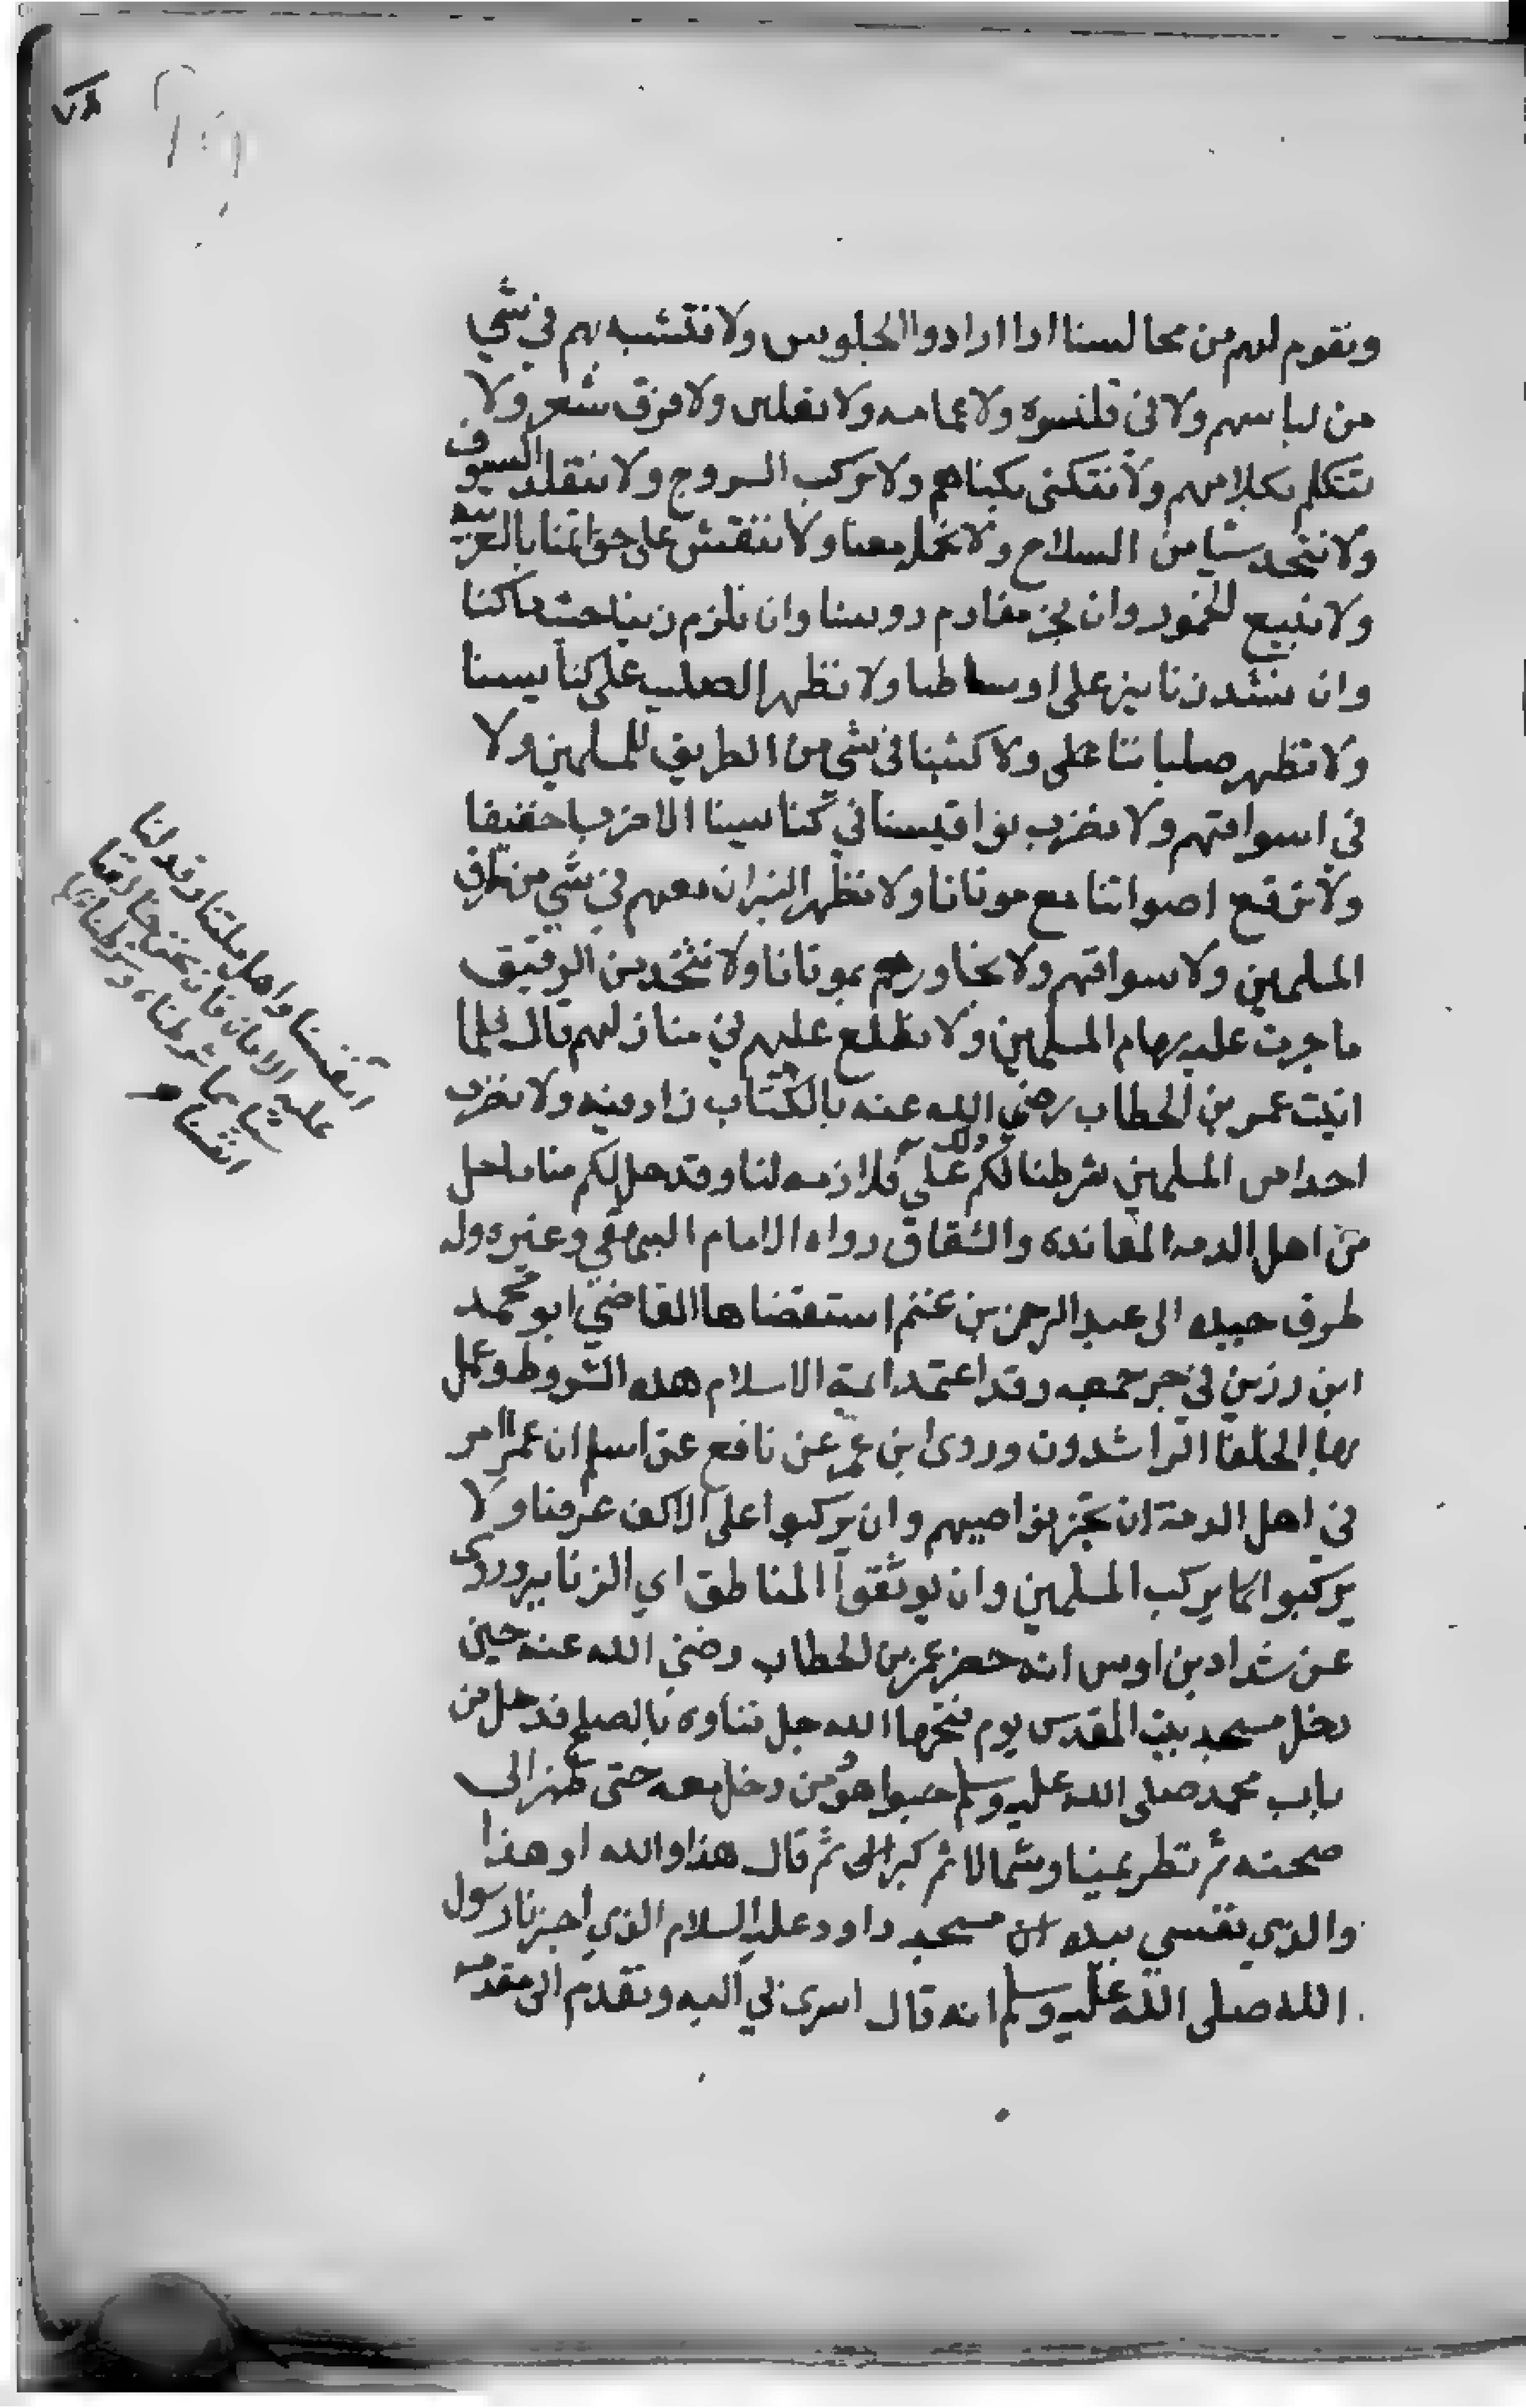 ٧٨
ونقوم لهم من مجالسنا اذا ارادوا الجلوس ولا نتشبه بهم في شي
من لباسهم ولا في قلنسوه ولا عمامه ولا نعلين ولا فرق شعر ولا
نتكلم بكلامهم ولا نتكنى بكناهم ولا نركب السروج ولا نتقلد السيوف
ولا نتخد شيا من السلاح ولا نحمله معنا ولا ننقش على خواتمنا بالعربيه
ولا نبيع الخمور وان نجز مقادم روسنا وان نلزم زينا حيثما كنا
وان نشد زنانير على اوساطنا ولا نظهر الصليب على كنايسنا
ولا نظهر صلباننا ولا كتبنا في شي من الطريق للمسلمين ولا
في اسواقهم ولا نضرب نواقيسنا في كنايسنا الا ضربا خفيفا
ولا نرفع اصواتنا مع موتانا ولا نظهر النيران معهم في شي من طرق
المسلمين ولا اسواقهم ولا نجاورهم بموتانا ولا نتخد من الرقيق
ما جرت عليه سهام المسلمين ولا نطلع عليهم في منازلهم قال فلما
اتيت عمر بن الخطاب رضي الله عنه بالكتاب زاد فيه ولا نضرب
احدا من المسلمين شرطنا لكم ذلك على
انفسنا واهل ملتنا وقبلنا
عليه الامان فان نحن خالفنا
شيا مما شرطناه
انفسنا
فلا ذمه لنا وقد حل لكم منا ما حل
من اهل الدمه المعانده والشقاق رواه الامام البيهقي وغيره وله
طرق جيده الى عبد الرحمن بن غنم استقضاها القاضي ابو محمد
ابن رزين في جز جمعه وقد اعتمد ايمة الاسلام هده الشروط وعمل
بها الخلفا الراشدون وروى ابن عمر عن نافع عن اسلم ان عمر امر
في اهل الدمة ان تجز نواصيهم وان يركبوا على الاكف عرضا ولا
يركبوا كما يركب المسلمين وان يوثقوا المناطق اي الزنانير وروى
عن شداد بن اوس انه حضر عمر بن الخطاب رضي الله عنه حين
دخل مسجد بيت المقدس يوم فتحها الله جل ثناوه بالصلح فدخل من
باب محمد صلى الله عليه وسلم حبوا هو ومن دخل معه حتى ظهر الى
صحنه ثم نظر يمينا وشمالا ثم كبر ثم قال هذا والله او هذا
والذي نفسي بيده مسجد داود عليه السلام الذي اخبرنا رسول
الله صلى الله عليه وسلم انه قال اسري بي اليه وتقدم الى مقدمه